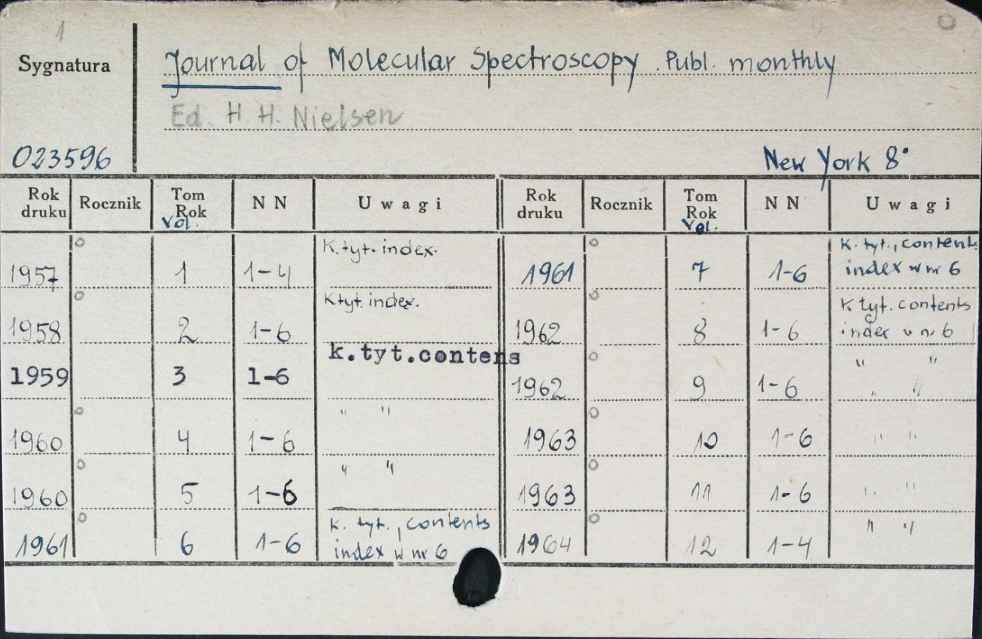 1
Sygnatura
Journal of Molecular Spectroscopy. Publ. monthly
Ed. H. H. Nielsen
023596
New York 8°
Rok druku Rocznik Tom Rok Vol. N N Uwagi Rok druku Rocznik Tom Rok Vol. N N Uwagi
1957 1 1-4 K.tyt. index. 1961 7 1-6 k. tyt., contents index w nr 6
1958 2 1-6 K tyt. index. 1962 8 1-6 k tyt. contents index w nr 6
1959 3 1-6 k.tyt.contens 1962 9 1-6 " " " "
1960 4 1-6 " " 1963 10 1-6 " "
1960 5 1-6 " " 1963 11 1-6 " "
1961 6 1-6 k. tyt., contents index w nr 6 1964 12 1-4 " "